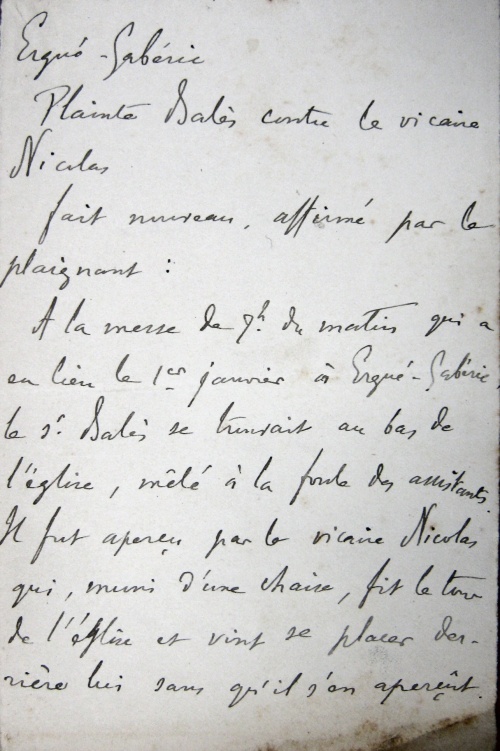 Ergué-Gabéric
Plainte Balès contre le vicaire
Nicolas
fait nouveau, affirmé par le
plaignant :
A la messe de 7h. du matin qui a
eu lieu le 1er janvier à Ergué-Gabéric
le sr. Balès se trouvait au bas de
l'église, mêlé à la foule des assistants.
Il fut aperçu par le vicaire Nicolas
qui, muni d'une chaise, fit le tour
de l'église et vint se placer der-
rière lui sans qu'il s'en aperçût.